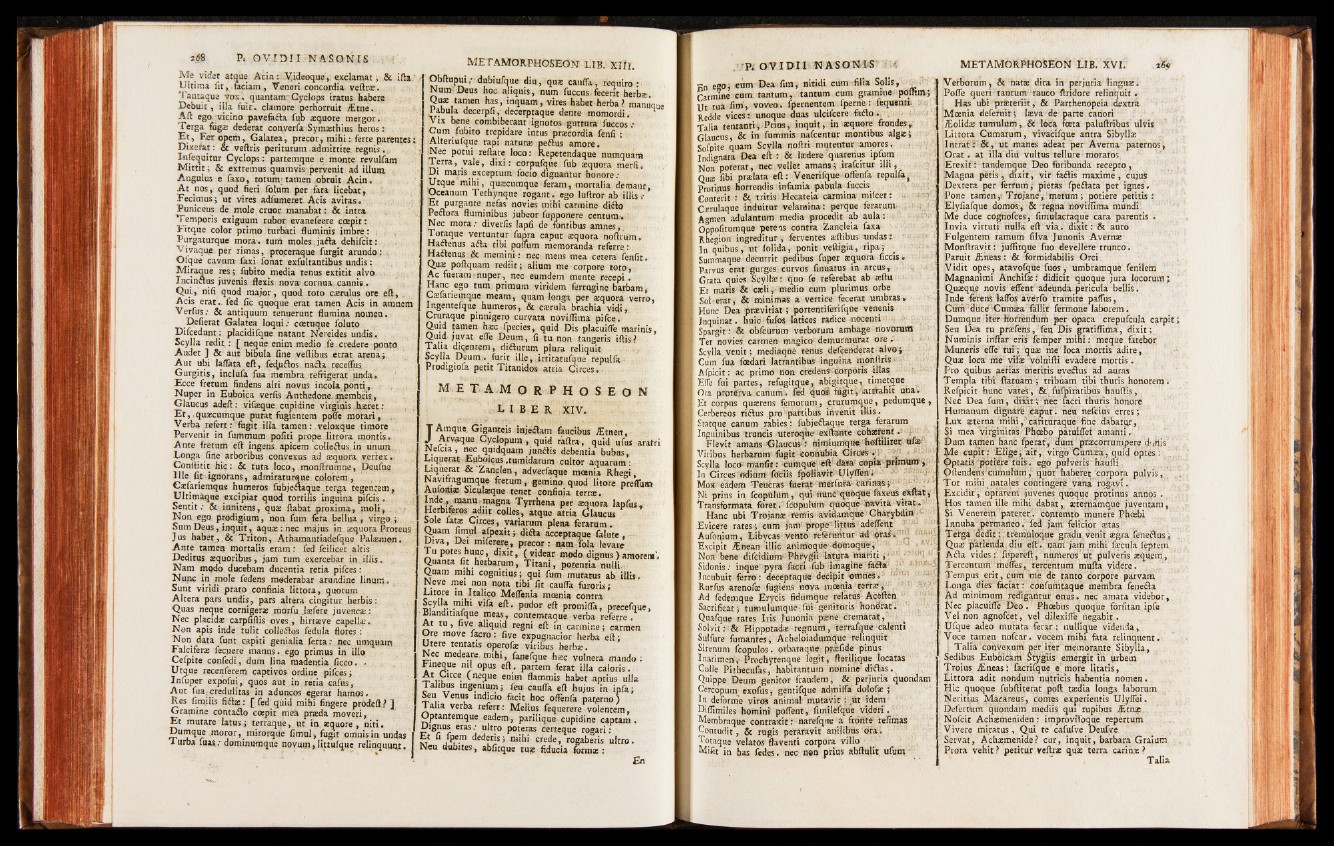 268 P. OVIDII NASONIS
Me videt atque Acin: Videoque, exclamat, & ista
Ultima sit, faciam, Veneri concordia vestræ.
Tantaque vox, quantam Cyclops iratus habere
Debuit, illa fuit. clamore perhorruit Ætne.
Ast ego vicino pavefacta sub æquore mergor.
Terga fugæ dederat conversa Symæthius heros:
Et, Fer opem, Galatea, precor, mihi: ferte parentes:
Dixerat: & vestris periturum admittite regnis.
Insequitur Cyclops: partemque e monte revulsam
Mittit: & extremus quamvis pervenit ad illum
Angulus e saxo, totum tamen obruit Acin.
At nos, quod fieri solum per fata licebat,
Fecimus; ut vires adsumeret Acis avitas.
Puniceus de mole cruor manabat: & intra
Temporis exiguum rubor evanescere cœpit:
Fitque color primo turbati fluminis imbre:
Purgaturque mora. tum moles jacta dehiscit:
Vivaque per rimas, proceraque surgit arundo:
Osque cavum saxi sonat exsultantibus undis:
Miraque res; subito media tenus extitit alvo
Incinctus juvenis flexis nova cornua cannis.
Qui, nisi quod major, quod toto cærulus ore est,
Acis erat. sed sic quoque erat tamen Acis in amnem
Versus: & antiquum tenuerunt flumina nomen.
Desierat Galatea loqui: cœtuque soluto
Discedunt: placidisque natant Nereides undis.
Scylla redit: [ neque enim medio se credere ponto
Audet ] & aut bibula sine vestibus errat arena;
Aut ubi lassata est, seductos nacta recessus
Gurgitis, inclusa sua membra refrigerat unda.
Ecce fretum findens alti novus incola ponti,
Nuper in Euboica versis Anthedone membris,
Glaucus adest: visæque cupidine virginis hæret:
Et, quæcumque putat fugientem posse morari,
Verba refert: fugit illa tamen: veloxque timore
Pervenit in summum positi prope littora montis.
Ante fretum est ingens apicem collectus in unum
Longa sine arboribus convexus ad æquora vertex.
Constitit hic: & tuta loco, monstrumne, Deusne
Ille sit ignorans, admiraturque colorem,
Cæsariemque humeros subjectaque terga tegentem,
Ultimaque excipiat quod tortilis inguina piscis.
Sentit: & innitens, quæ stabat proxima, moli,
Non ego prodigium, non sum fera bellua, virgo;
Sum Deus, inquit, aquæ: nec majus in æquora Proteus
Jus habet, & Triton, Athamantiadesque Palæmon.
Ante tamen mortalis eram: sed scilicet altis
Deditus æquoribus, jam tum exercebar in illis.
Nam modo ducebam ducentia retia pisces:
Nunc in mole sedens moderabar arundine linum.
Sunt viridi prato confinia littora, quorum
Altera pars undis, pars altera cingitur herbis:
Quas neque cornigeræ morsu læsere juvencæ:
Nec placidæ carpsistis oves, hirtæve capellæ.
Non apis inde tulit collectos sedula flores:
Non data sunt capiti genialia serta: nec umquam
Falciferæ secuere manus. ego primus in illo
Cespite consedi, dum lina madentia sicco.
Utque recenserem captivos ordine pisces;
Insuper exposui, quos aut in retia casus,
Aut sua credulitas in aduncos egerat hamos.
Res similis fictæ: [ sed quid mihi fingere prodest? ]
Gramine contacto cœpit mea præda moveri,
Et mutare latus; terraque, ut in æquore, niti.
Dumque moror, mirorque simul, fugit omnis in undas
Turba suas: dominumque novum, littusque relinquunt.
METAMORPHOSEON LIB. XIII.
Obstupui: dubiusque diu, quæ caussa, requiro:
Num Deus hoc aliquis, num succus fecerit herbæ.
Quæ tamen has, inquam, vires habet herba? manuque
Pabula decerpsi, decerptaque dente momordi.
Vix bene combiberant ignotos guttura succos:
Cum subito trepidare intus præcordia sensi:
Alteriusque rapi naturæ pectus amore.
Nec potui restare loco: Repetendaque numquam
Terra, vale, dixi: corpusque sub æquora mersi.
Di maris exceptum socio dignantur honore:
Utque mihi, quæcumque feram, mortalia demant,
Oceanum Tethynque rogant. ego lustror ab illis:
Et purgante nefas novies mihi carmine dicto
Pectora fluminibus jubeor supponere centum.
Nec mora: diversis lapsi de fontibus amnes,
Totaque vertuntur supra caput æquora nostrum.
Hactenus acta tibi possum memoranda referre:
Hactenus & memini: nec mens mea cetera sensit.
Quæ postquam rediit; alium me corpore toto,
Ac fueram nuper, nec eumdem mente recepi.
Hanc ego tum primum viridem ferrugine barbam,
Cæsariemque meam, quam longa per æquora verro,
Ingentesque humeros, & cærula brachia vidi,
Cruraque pinnigero curvata novissima pisce.
Quid tamen hæc species, quid Dis placuisse marinis,
Quid juvat esse Deum, si tu non tangeris istis?
Talia dicentem, dicturum plura reliquit
Scylla Deum. furit ille, irritatusque repulsa
Prodigiosa petit Titanidos atria Circes.
METAMORPHOSEON
LIBER XIV.
JAmque Giganteis injectam faucibus Ætnen,
Arvaque Cyclopum, quid rastra, quid usus aratri
Nescia, nec quidquam junctis debentia bubus,
Liquerat Euboicus tumidarum cultor aquarum:
Liquerat & Zanclen, adversaque mœnia Rhegi,
Navifragumque fretum, gemino quod litore pressum
Ausoniæ Siculæque tenet confinia terræ.
Inde, manu magna Tyrrhena per æquora lapsus,
Herbiferos adiit colles, atque atria Glaucus
Sole satæ Circes, variarum plena ferarum.
Quam simul aspexit; dicta acceptaque salute,
Diva, Dei miserere, precor: nam sola levare
Tu potes hunc, dixit, (videar modo dignus) amorem.
Quanta sit herbarum, Titani, potentia nulli
Quam mihi cognitius; qui sum mutatus ab illis.
Neve mei non nota tibi sit caussa furoris;
Litore in Italico Messenia mœnia contra
Scylla mihi visa est. pudor est promissa, precesque,
Blanditiasque meas, contemtaque verba referre.
At tu, sive aliquid regni est in carmine; carmen
Ore move sacro: sive expugnacior herba est;
Utere tentatis operosæ viribus herbæ.
Nec medeare mihi, sanesque hæc vulnera mando:
Fineque nil opus est. partem ferat illa caloris.
At Circe (neque enim flammis habet aptius ulla
Talibus ingenium; seu caussa est hujus in ipsa;
Seu Venus indicio facit hoc offensa paterno)
Talia verba refert: Melius sequerere volentem,
Optantemque eadem, parilique cupidine captam.
Dignus eras: ultro poteras certeque rogari:
Et si spem dederis; mihi crede, rogaberis ultro.
Neu dubites, absitque tuæ fiducia formæ:
En
P. OVIDII NASONIS
En ego, cum Dea sim, nitidi cum filia Solis,
Carmine cum tantum, tantum cum gramine possim;
Ut tua sim, voveo. spernentem sperne: sequenti
Redde vices: unoque duas ulciscere facto.
Talia tentanti, Prius, inquit, in æquore frondes,
Glaucus, & in summis nascentur montibus algæ;
Sospite quam Scylla nostri mutentur amores.
Indignata Dea est: & lædere quatenus ipsum
Non poterat, nec vellet amans; irascitur illi,
Quæ sibi prælata est: Venerisque offensa repulsa,
Protinus horrendis infamia pabula succis
Conterit: & tritis Hecateia carmina miscet:
Cærulaque induitur velamina: perque ferarum
Agmen adulantum media procedit ab aula:
Oppositumque petens contra Zancleia saxa
Rhegion ingreditur, ferventes æstibus undas:
In quibus, ut solida, ponit vestigia, ripa;
Summaque decurrit pedibus super æquora siccis.
Parvus erat gurges curvos sinuatus in arcus,
Grata quies Scyllæ: quo se referebat ab æstu
Et maris & cæli, medio cum plurimus orbe
Sol erat, & minimas a vertice fecerat umbras.
Hunc Dea prævitiat; portentiferisque venenis
Inquinat. huic fusos latices radice nocenti
Spargit: & obscurum verborum ambage novorum
Ter novies carmen magico demurmurat ore.
Scylla venit; mediaque tenus descenderat alvo;
Cum sua fœdari latrantibus inguina monstris
Aspicit: ac primo non credens corporis illas
Esse sui partes, refugitque, abigitque, timetque
Ora proterva canum, sed quos fugit, attrahit una.
Et corpus quærens femorum, crurumque, pedumque,
Cerbereos rictus pro partibus invenit illis.
Statque canum rabies: subjectaque terga ferarum
Inguinibus truncis uteroque exstante cohærent.
Flevit amans Glaucus: nimiumque hostiliter usæ
Viribus herbarum fugit connubia Circes.
Scylla loco mansit: cumque est data copia primum,
In Circes odium sociis spoliavit Ulyssen.
Mox eadem Teucras fuerat mersura carinas;
Ni prius in scopulum, qui nunc quoque saxeus exstat,
Transformata foret. scopulum quoque navita vitat.
Hanc ubi Trojanæ remis avidamque Charybdin
Evicere rates; cum jam prope littus adessent
Ausonium, Libycas vento referuntur ad oras.
Excipit Ænean illic animoque domoque,
Non bene discidium Phrygii latura mariti,
Sidonis: inque pyra sacri sub imagine facta
Incubuit ferro: deceptaque decipit omnes.
Rursus arenosæ fugiens nova mœnia terræ,
Ad sedemque Erycis fidumque relatus Acesten
Sacrificat; tumulumque sui genitoris honorat.
Quasque rates Iris Junonia pæne cremarat,
Solvit: & Hippotadæ regnum, terrasque calenti
Sulfure fumantes, Acheloiadumque relinquit
Sirenum scopulos. orbataque præside pinus
Inarimen, Prochytenque legit, sterilique locatas
Colle Pithecusas, habitantum nomine dictas.
Quippe Deum genitor fraudem, & perjuria quondam
Cercopum exosus, gentisque admissa dolosæ;
In deforme viros animal mutavit: ut idem
Dissimiles homini possent, similesque videri.
Membraque contraxit: naresque a fronte resimas
Contudit, & rugis peraravit anilibus ora.
Totaque velatos flaventi corpora villo
Misit in has sedes. nec non prius abstulit usum
METAMORPHOSEON LIB. XVI. 269
Verborum, & natæ dira in perjuria linguæ.
Posse queri tantum rauco stridore relinquit.
Has ubi præteriit, & Parthenopeia dextra
Mœnia deseruit; læva de parte canori
Æolidæ tumulum, & loca fœta palustribus ulvis
Littora Cumarum, vivacisque antra Sibyllæ
Intrat: &, ut manes adeat per Averna paternos,
Orat. at illa diu vultus tellure moratos
Erexit: tandemque Deo furibunda recepto,
Magna petis, dixit, vir factis maxime, cujus
Dextera per ferrum, pietas spectata per ignes.
Pone tamen, Trojane, metum; potiere petitis:
Elysiasque domos, & regna novissima mundi
Me duce cognosces, simulacraque cara parentis.
Invia virtuti nulla est via. dixit: & auro
Fulgentem ramum silva Junonis Avernæ
Monstravit: jussitque suo devellere trunco.
Paruit Æneas: & formidabilis Orci
Vidit opes, atavosque suos, umbramque senilem
Magnanimi Anchisæ: didicit quoque jura locorum;
Quæque novis essent adeunda pericula bellis.
Inde ferens lassos averso tramite passus,
Cum duce Cumæa fallit sermone laborem.
Dumque iter horrendum per opaca crepuscula carpit;
Seu Dea tu præsens, seu Dis gratissima, dixit;
Numinis instar eris semper mihi: meque fatebor
Muneris esse tui; quæ me loca mortis adire,
Quæ loca me visæ voluisti evadere mortis.
Pro quibus aerias meritis evectus ad auras
Templa tibi statuam; tribuam tibi thuris honorem.
Respicit hunc vates, & suspiratibus haustis,
Nec Dea sum, dixit; nec sacri thuris honore
Humanum dignare caput. neu nescius erres;
Lux æterna mihi, carituraque fine dabatur,
Si mea virginitas Phœbo patuisset amanti.
Dum tamen hanc sperat, dum præcorrumpere donis
Me cupit: Elige, ait, virgo Cumæa, quid optes:
Optatis potiere tuis. ego pulveris hausti
Ostendens cumulum, quot haberet corpora pulvis,
Tot mihi natales contingere vana rogavi.
Excidit, optarem juvenes quoque protinus annos.
Hos tamen ille mihi dabat, æternamque juventam,
Si Venerem paterer. contemto munere Phœbi
Innuba permaneo. sed jam felicior ætas
Terga dedit: tremuloque gradu venit ægra senectus;
Quæ patienda diu est. nam jam mihi sæcula septem
Acta vides: superest, numeros ut pulveris æquem,
Tercentum messes, tercentum musta videre.
Tempus erit, cum me de tanto corpore parvam
Longa dies faciat: consumtaque membra senecta
Ad minimum redigantur onus. nec amata videbor,
Nec placuisse Deo. Phœbus quoque forsitan ipse
Vel non agnoscet, vel dilexisse negabit.
Usque adeo mutata ferar: nullique videnda,
Voce tamen noscar. vocem mihi fata relinquent.
Talia convexum per iter memorante Sibylla,
Sedibus Euboicam Stygiis emergit in urbem
Troius Æneas: sacrisque e more litatis,
Littora adit nondum nutricis habentia nomen.
Hic quoque substiterat post tædia longa laborum
Neritius Macareus, comes experientis Ulyssei.
Desertum quondam mediis qui rupibus Ætnæ
Noscit Achæmeniden: improvisoque repertum
Vivere miratus, Qui te casusve Deusve
Servat, Achæmenide? cur, inquit, barbara Graium
Prora vehit? petitur vestra quæ terra carina?
Talia